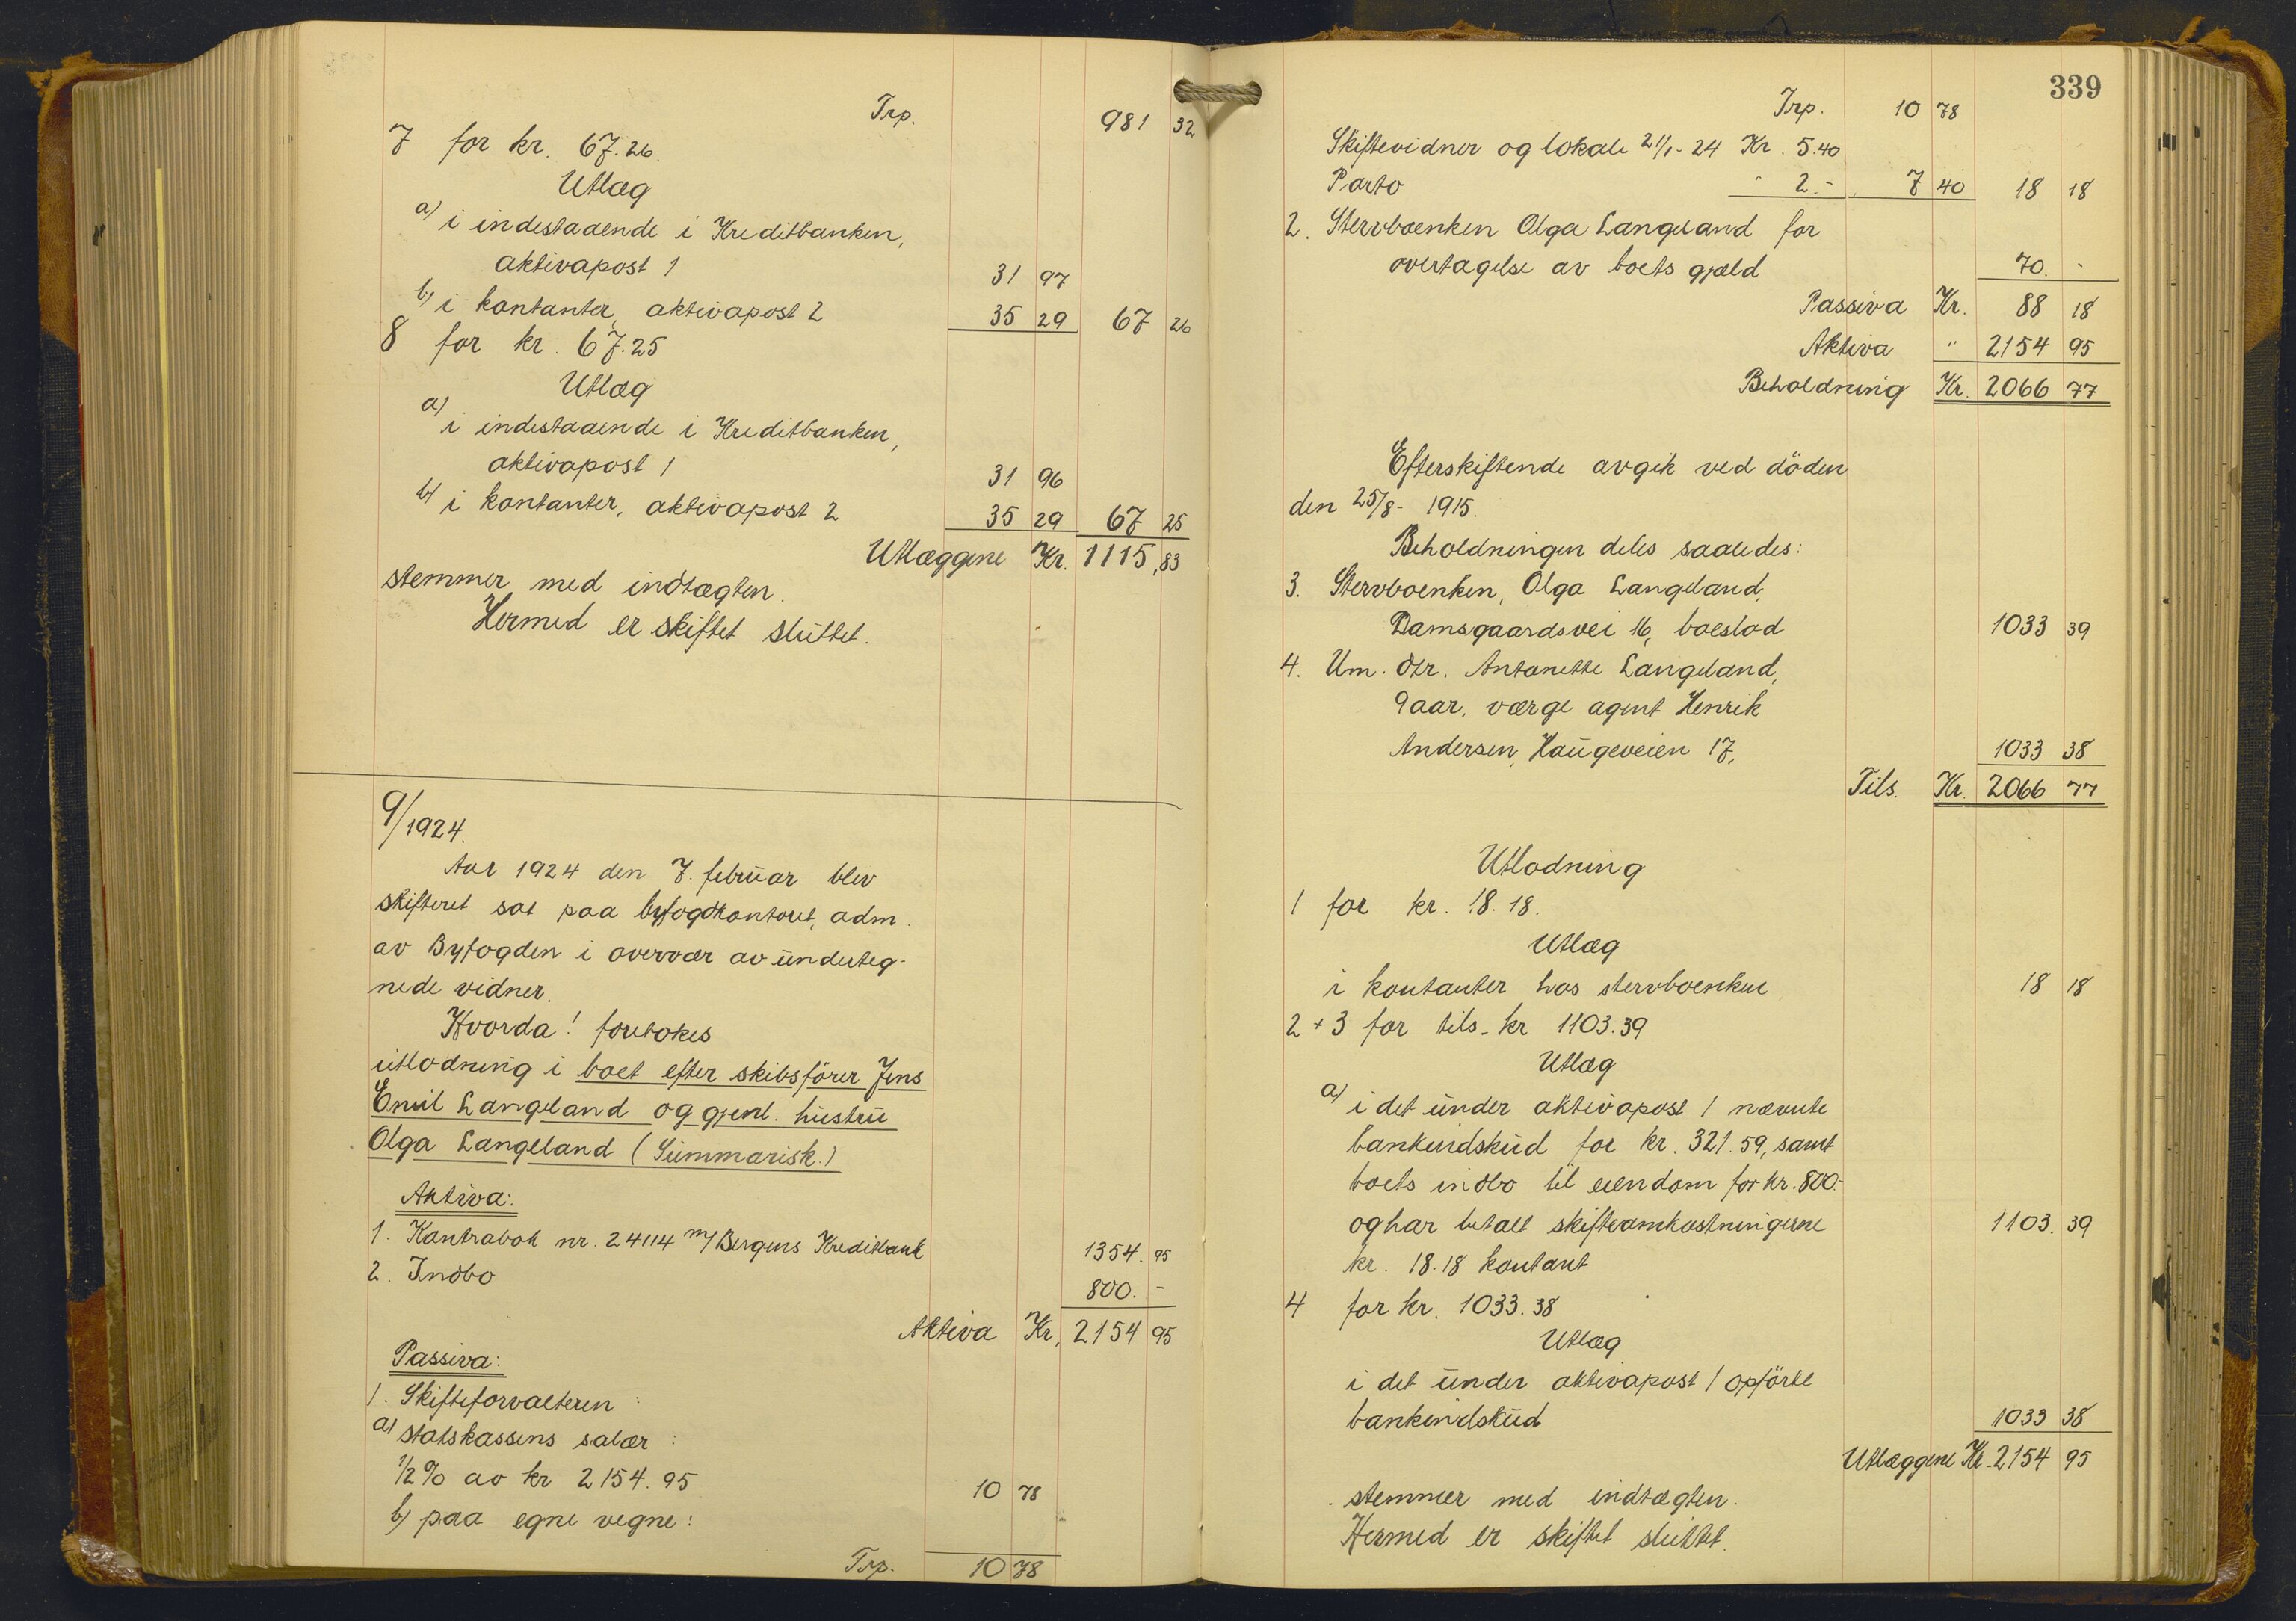 Trp. 981 32
7 for kr. 67.26.
Utlæg
a) i indestaaende i Kreditbanken,
aktivapost 1 31 97
b) i kontanter, aktivapost 2 35 29 67 26
8 for kr. 67.25
Utlæg
a) i indestaaende i Kreditbanken,
aktivapost 1 31 96
b) i kontanter, aktivapost 2 35 29 67 25
Utlæggene Kr. 1115,83
stemmer med indtægten.
Hermed er skiftet sluttet.
9/1924.
Aar 1924 den 7. februar blev
skifteret sat paa byfogdkontoret, adm.
av Byfogden i overvær av underteg-
nede vidner.
Hvorda! foretokes
utlodning i boet efter skibsfører Jens
Emil Langeland og gjenl. hustru
Olga Langeland (Summarisk.)
Aktiva:
1. Kontrabok nr. 24114 m/Bergens Kreditbank 1354.95
2. Indbo 800.-
Aktiva Kr. 2154 95
Passiva:
1. Skifteforvalteren:
a) statskassens salær:
1/2% av kr 2154.95 10 78
b) paa egne vegne:
Trp. 10 78
339
Trp. 10 78
Skiftevidner og lokale 21/1-24 Kr. 5.40
Porto " 2.- 7 40 18 18
2. Stervboenken Olga Langeland for
overtagelse av boets gjæld 70.-
Passiva Kr. 88 18
Aktiva " 2154 95
Beholdning Kr. 2066 77
Efterskiftende avgik ved döden
den 25/8-1915.
Beholdningen deles saaledes:
3. Stervboenken, Olga Langeland,
Damsgaardsvei 16, boeslod 1033 39
4. Um. dtr. Antonette Langeland,
9 aar, værge agent Henrik
Andersen, Haugeveien 17, 1033 38
Tils. Kr. 2066 77
Utlodning
1 for kr. 18.18.
Utlæg
i kontanter hos stervboenken 18 18
2 + 3 for tils. kr 1103.39
Utlæg
a) i det under aktivapost 1 nævnte
bankindskud for kr. 321.59, samt
boets indbo til eiendom for kr. 800.-
og har betalt skifteomkostningerne 1103.39
kr. 18.18 kontant
4 for kr. 1033.38
Utlæg
i det under aktivapost 1 opförte
bankindskud 1033 38
Utlæggene Kr. 2154 95
stemmer med indtægten.
Hermed er skiftet sluttet.